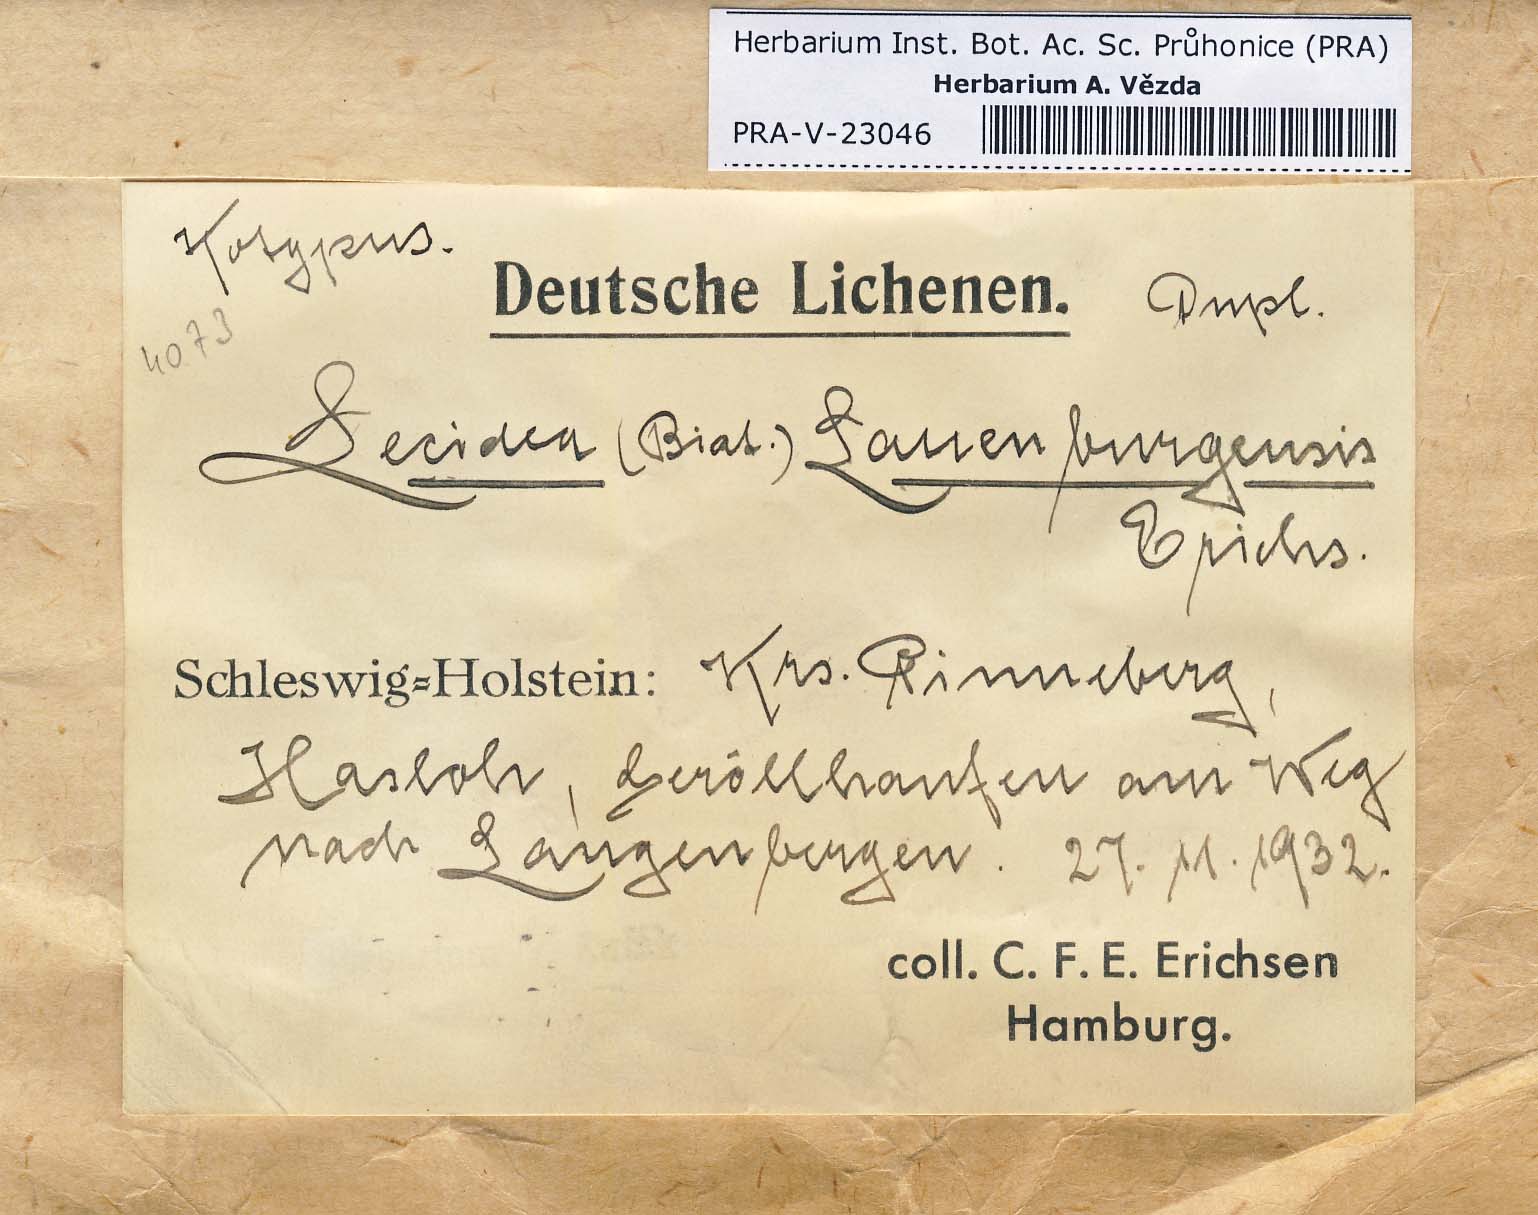 Herbarium Inst. Bot. Ac. Sc. Průhonice (PRA)
Herbarium A. Vězda
PRA-V-23046
Kotypus.
Deutsche Lichenen.
Dupl.
4073
Lecidea (Biat.) Lauenburgensis
Erichs.
Schleswig=Holstein: Krs. Pinneberg,
Hasloh, Geröllhaufen am Weg
nach Langenbergen. 27. 11. 1932.
coll. C. F. E. Erichsen
Hamburg.